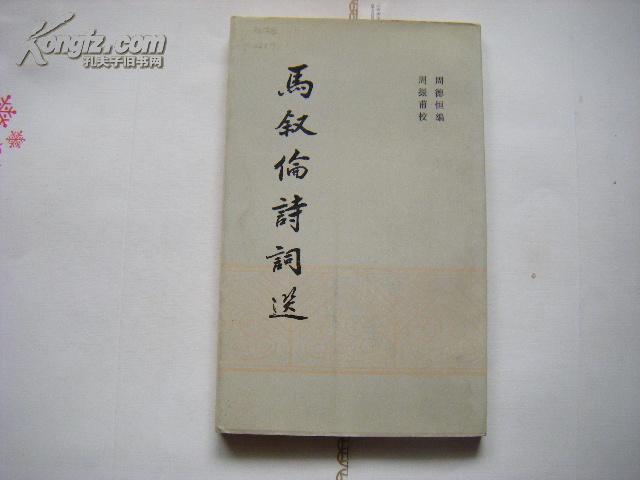 Kongfz.com
孔夫子旧书网
馬叙倫詩詞選
周德恒編
周振甫校